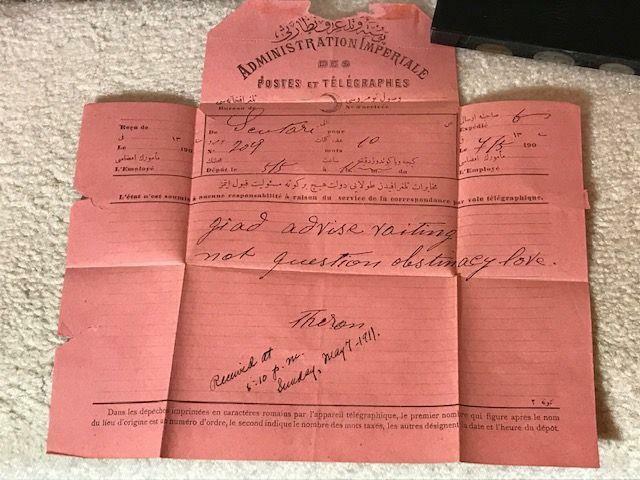 ADMINISTRATION IMPÉRIALE
DES
POSTES ET TÉLÉGRAPHES
Bureau de
N° d'arrivée
Reçu de
De Scutari pour
Expédié 6
N° 209 mots 10
Le ١٣ 190
Le 7/5 ١٣ 190
L'Employé
Dépôt le 5/5 à m du
L'Employé
مخابرات تلغرافيه‌دن طولايى دولت هيچ بر كونه مسئوليت قبول ايتمز
L'état n'est soumis à aucune responsabilité à raison du service de la correspondance par voie télégraphique.
giad advise vaiting
not question obstinacy love.
Theron
Received at
6-10 p.m.
Sunday, May 7-1911.
Dans les dépêches imprimées en caractères romains par l'appareil télégraphique, le premier nombre qui figure après le nom
du lieu d'origine est un numéro d'ordre, le second indique le nombre des mots taxés, les autres désignent la date et l'heure du dépôt.